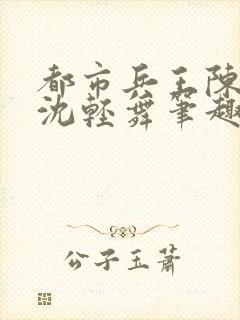 都市兵王陳
沈輕舞筆趣
公子玉蕭